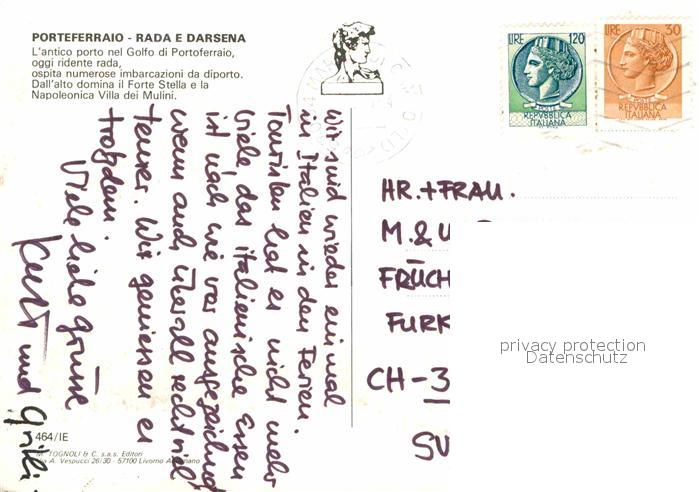 PORTEFERRAIO - RADA E DARSENA
L'antico porto nel Golfo di Portoferraio,
oggi ridente rada,
ospita numerose imbarcazioni da diporto.
Dall'alto domina il Forte Stella e la
Napoleonica Villa dei Mulini.
LIRE 120
POSTE
REPVBBLICA
ITALIANA
LIRE 30
POSTE
REPVBBLICA
ITALIANA
Wir sind wieder einmal
in Italien in den Ferien.
Touristen hat es nicht mehr
viele, das italienische Essen
ist nach wie vor ausgezeichnet
wenn auch überall recht viel
teurer. Wir geniessen es
trotzdem.
Viele liebe Grüsse
Kurt und
HR. + FRAU.
M. & U.
FRÜCH
FURK
CH-3
SV
privacy protection
Datenschutz
464/IE
M. TOGNOLI & C. s.a.s. Editori
Via A. Vespucci 26/30 - 57100 Livorno